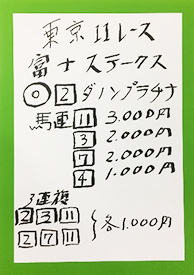 東京11レース
富士ステークス
◎ 2 ダノンプラチナ
馬連 11 3.000円
3 2.000円
7 2.000円
4 1.000円
3連複
2 3 11
2 7 11
各1.000円